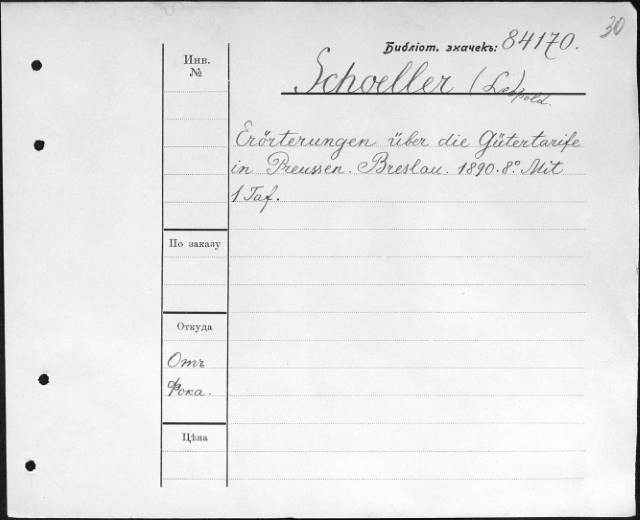 30
Библіот. значекъ: 84170.
Инв.
№
Schoeller (Leopold.
Erörterungen über die Gütertarife
in Preussen. Breslau. 1890. 8º. Mit
1 Taf.
По заказу
Откуда
Отъ
Фока.
Цѣна